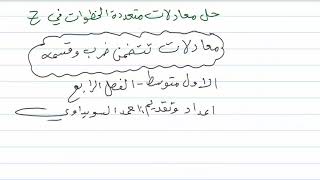 حل معادلات متعددة الخطوات في Z
معادلات تتضمن ضرب وقسمة
الاول متوسط - الفصل الرابع
اعداد وتقديم: احمد السويداوي